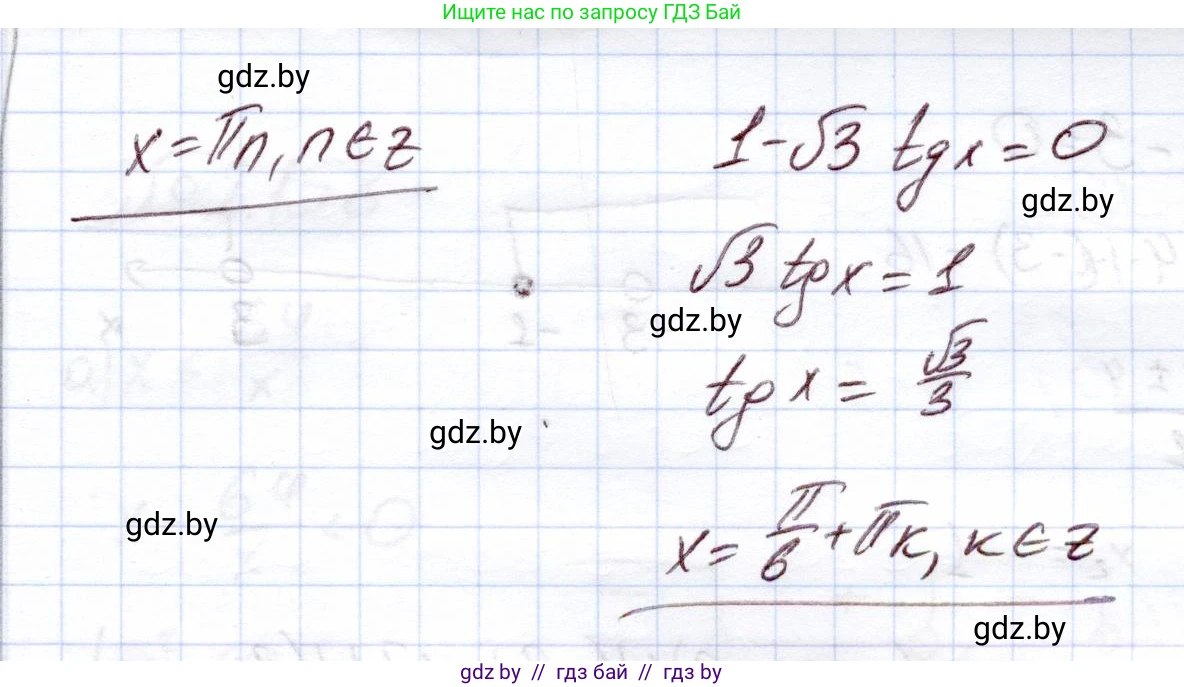 Ищите нас по запросу ГДЗ Бай
gdz.by
x = πn, n ∈ z
1 - √3 tg x = 0
gdz.by
√3 tg x = 1
gdz.by
tg x = √3/3
gdz.by
gdz.by
x = π/6 + πк, к ∈ z
gdz.by
gdz.by // гдз бай // гдз by